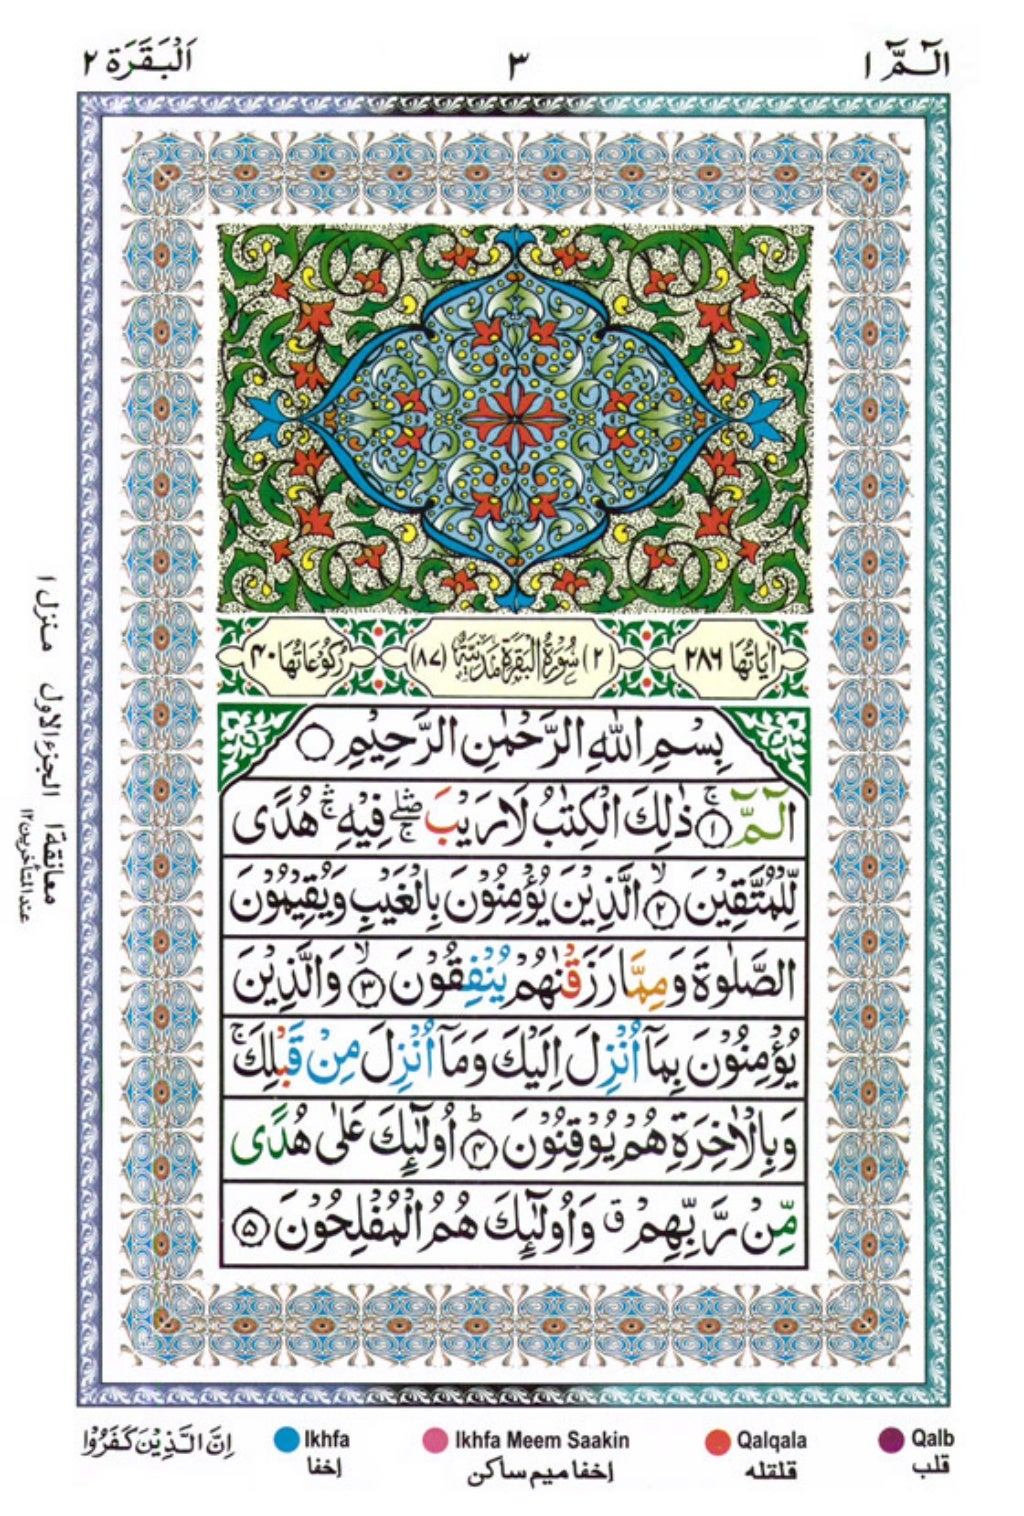 الٓمّٓ ١
٣
اَلْبَقَرَة ٢
اٰيَاتُهَا ٢٨٦
(٢) سُوْرَةُ الْبَقَرَةِ مَدَنِيَّةٌ (٨٧)
رُكُوْعَاتُهَا ٤٠
بِسْمِ اللّٰهِ الرَّحْمٰنِ الرَّحِيْمِ ۝
الٓمّٓ ۚ﴿١﴾ ذٰلِكَ الْكِتٰبُ لَا رَيْبَ ۛۖۚ فِيْهِ ۛۚ هُدًى
لِّلْمُتَّقِيْنَ ۙ﴿٢﴾ الَّذِيْنَ يُؤْمِنُوْنَ بِالْغَيْبِ وَيُقِيْمُوْنَ
الصَّلٰوةَ وَمِمَّا رَزَقْنٰهُمْ يُنْفِقُوْنَ ۙ﴿٣﴾ وَالَّذِيْنَ
يُؤْمِنُوْنَ بِمَآ اُنْزِلَ اِلَيْكَ وَمَآ اُنْزِلَ مِنْ قَبْلِكَ ۚ
وَبِالْاٰخِرَةِ هُمْ يُوْقِنُوْنَ ؕ﴿٤﴾ اُولٰٓئِكَ عَلٰى هُدًى
مِّنْ رَّبِّهِمْ ۗ وَاُولٰٓئِكَ هُمُ الْمُفْلِحُوْنَ ﴿٥﴾
معانقة ١ الجزء الاول منزل ١
عند المتأخرين ١٢
اِنَّ الَّذِيْنَ كَفَرُوْا
Ikhfa
إخفا
Ikhfa Meem Saakin
إخفا ميم ساكن
Qalqala
قلقله
Qalb
قلب